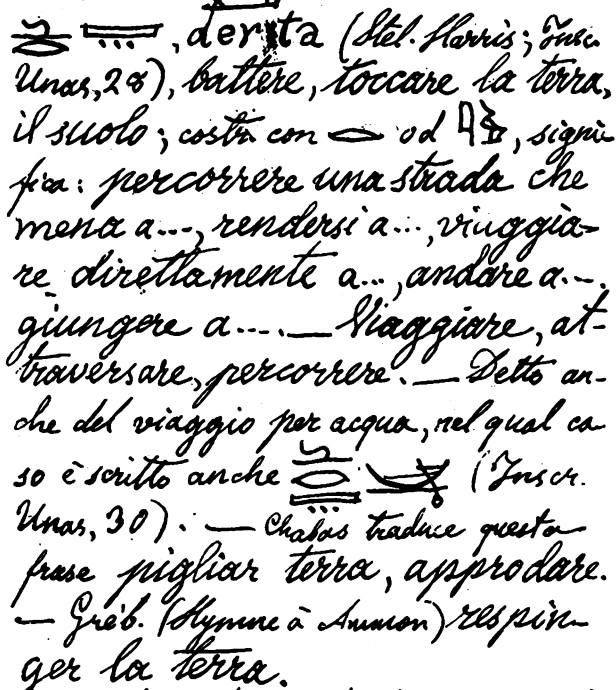 , derita (Stel. Harris; Inscr.
Unas, 28), battere, toccare la terra,
il suolo; costr. con od , signi
fica: percorrere una strada che
mena a..., rendersi a..., viaggia-
re direttamente a..., andare a...
giungere a.... — Viaggiare, at-
traversare, percorrere. — Detto an-
che del viaggio per acqua, nel qual ca
so è scritto anche (Inscr.
Unas, 30). — Chabas traduce questa
frase pigliar terra, approdare.
— Gréb. (Hymne à Ammon) respin-
ger la terra.